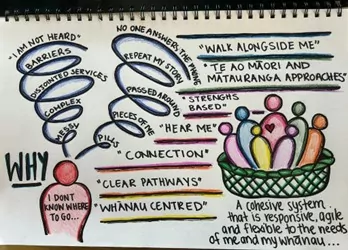 "I AM NOT HEARD"
BARRIERS
DISJOINTED SERVICES
COMPLEX
MESSY
NO ONE ANSWERS THE PHONE
REPEAT MY STORY
PASSED AROUND
PIECES OF ME
PILLS
WHY
I DON'T
KNOW WHERE
TO GO...
"WALK ALONGSIDE ME"
"TE AO MĀORI AND
MATAURANGA APPROACHES"
"STRENGHS
BASED"
"HEAR ME"
"CONNECTION"
"CLEAR PATHWAYS"
"WHĀNAU CENTRED"
A cohesive system
that is responsive, agile
and flexible to the needs
of me and my whānau...